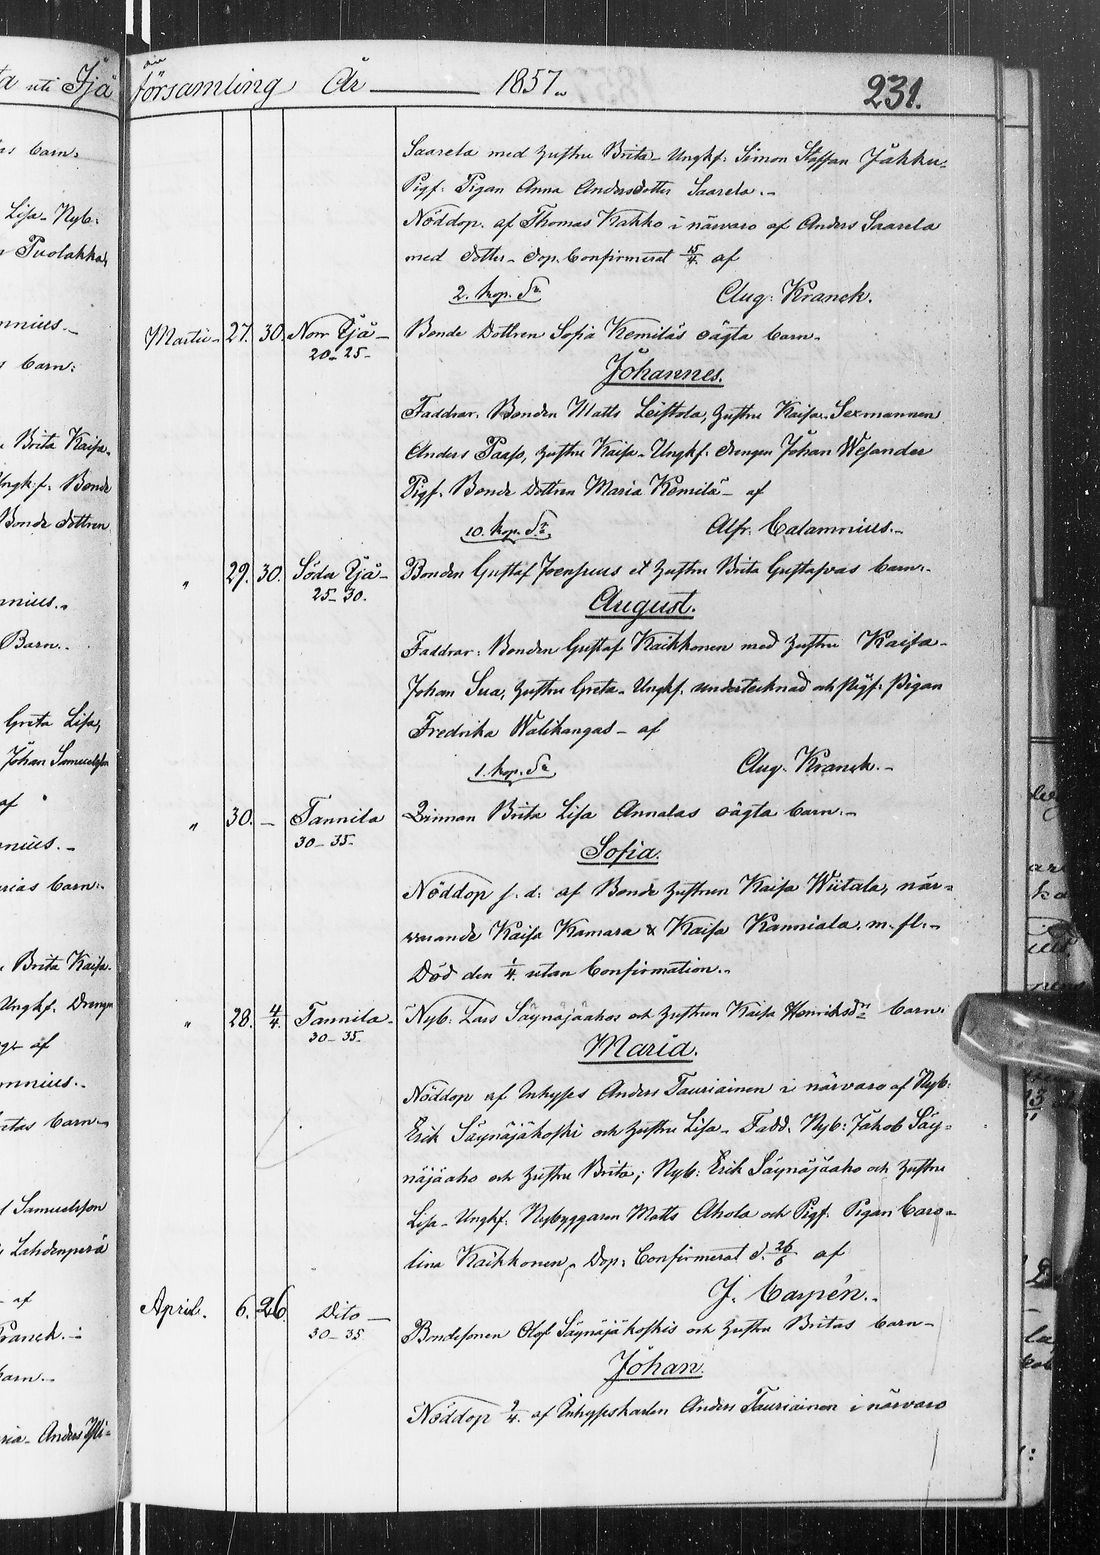 församling År 1857.
231.
Saarela med hustru Brita - Ungkf: Simon Staffan Jåkku-
Pigf: Pigan Anna Andersdotter Saarela.-
Nöddop. af Thomas Kakko i närvaro af Anders Saarela
med dotter - Dop. Confirmerat 15/4 af
2. kop. Sr. Aug: Kranck.
Martii- 27. 30. Norr Ijå- Bonde Dottren Sofia Kemiläs oägta barn-
20-25-
Johannes.
Faddrar. Bonden Matts Leistola, hustru Kaisa. Sexmannen
Anders Paaso, hustru Kaisa - Ungkf. drengen Johan Wesander
Pigf. Bonde Dottren Maria Kemilä - af
10. kop. Sr. Alfr. Calamnius.-
" 29. 30. Söda Ijå- Bonden Gustaf Joensuus et hustru Brita Gustafvas barn.
25-30.
August.
Faddrar: Bonden Gustaf Kaikkonen med hustru Kaisa-
Johan Sua, hustru Greta - Ungkf. undertecknad och Pigf: Pigan
Fredrika Walikangas - af
1. kop. Sr. Aug. Kranck.-
" 30. - Tannila Qvinnan Brita Lisa Annalas oägta barn.-
30-35-
Sofia.
Nöddop s. d. af Bonde hustrun Kaisa Wiitala, när-
varande Kaisa Kamara & Kaisa Kanniala. m. fl.-
Död den 1/4. utan Confirmation.-
" 28. 4/4. Tannila- Nyb: Lars Säynäjäahos och hustrun Kaisa Henriksdr barn.
30-35-
Maria.
Nöddop af Inhyses Anders Tauriainen i närvaro af Nyb:
Erik Säynäjäkoski och hustru Lisa - Fadd. Nyb: Jakob Säy-
näjäaho och hustru Brita; Nyb. Erik Säynäjäaho och hustru
Lisa - Ungkf: Nybyggaren Matts Ahola och Pigf. Pigan Caro-
lina Kaikkonen, Dop: Confirmerat d. 26/6 af
J. Carpén.-
April. 6. 26. Dito - Bondesonen Olof Säynäjäkoskis och hustru Britas barn-
30-35
Johan
Nöddop /4. af Inhyseskarlen Anders Tauriainen i närvaro